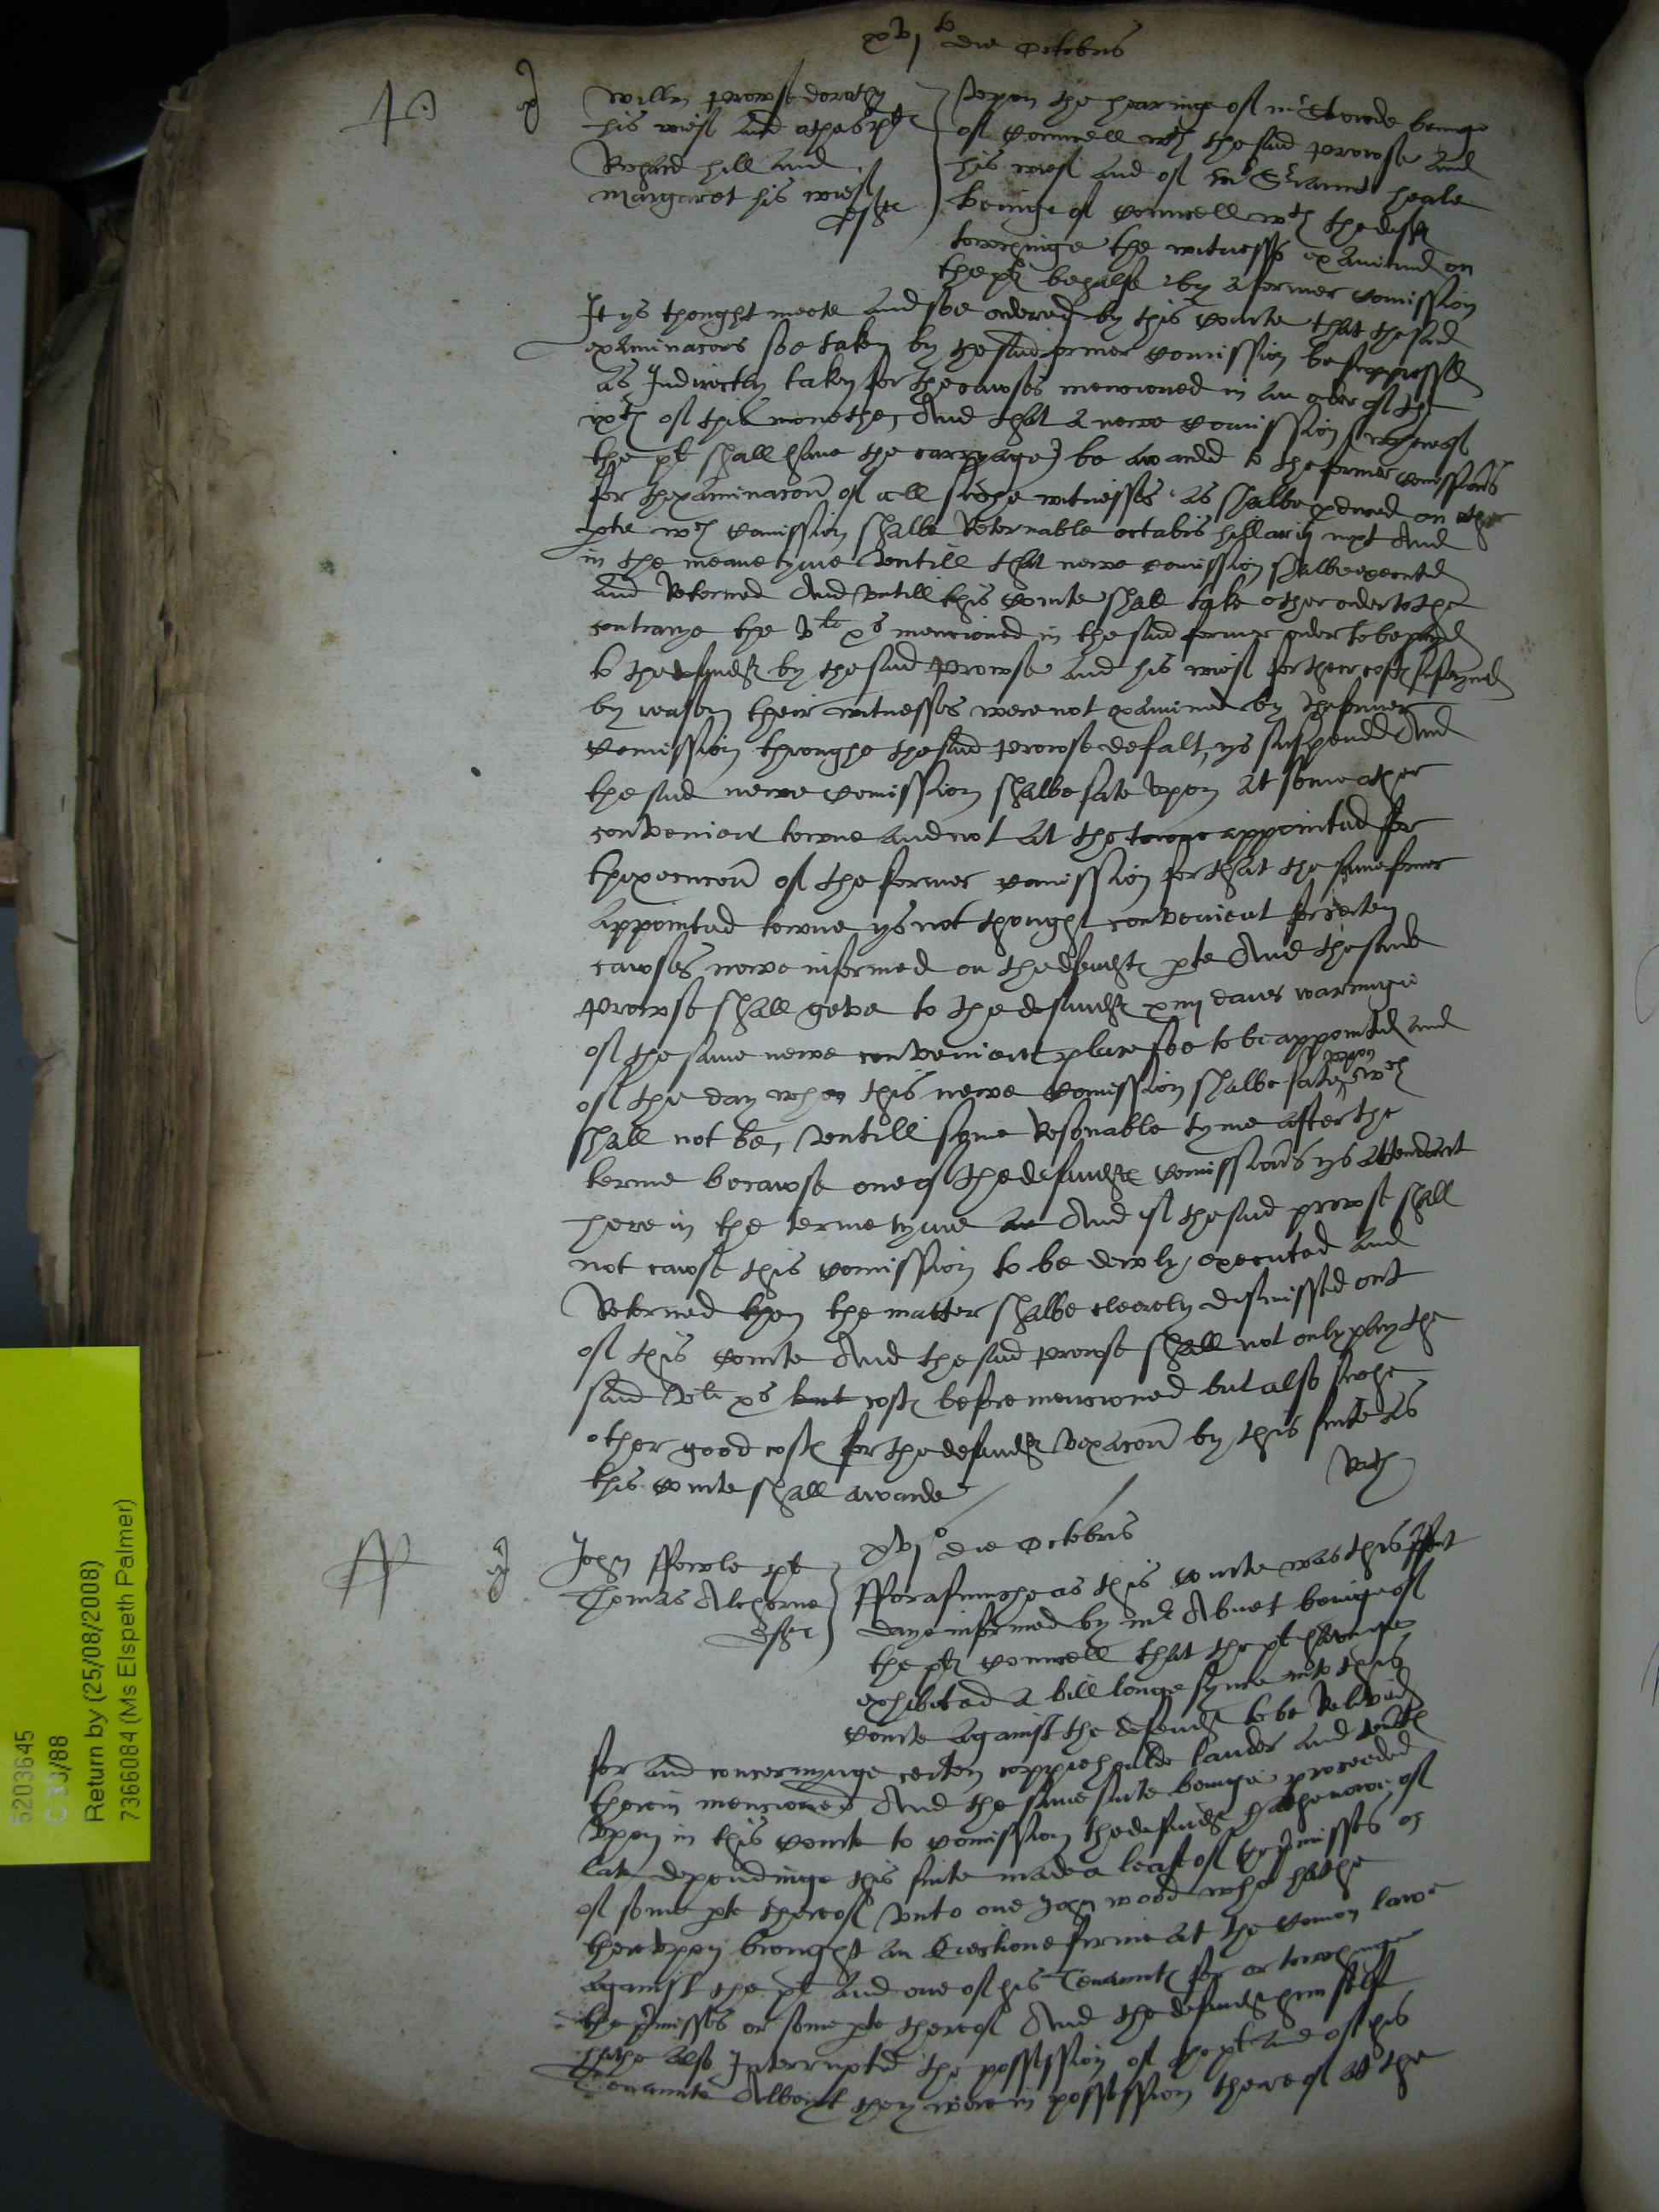 xvj to die Octobris
Willm Prowse dorothy
his wief and others plt
Richard hill and
Margaret his wief
deftes
Vpon the hearinge of mr Stowde beinge
of Councell wth the said Prowse and
his wief and of mr Srieaunt heale
beinge of Councell wth the deftes
towchinge the witnesses examined on
the plts behalfe by a former Comission
It ys thought meete and soe ordered by this Courte that the said
examinacons soe taken by the said former Comission be suppressed
as Indirectly taken for the cawses mencioned in an order of the
ixth of this monethe, And that a newe Comission (whereof
the plt shall have the carryage) be awarded to the former Comissioners
for thexaminacon of all suche witnesses as shalbe pduced on ether
pte wch Comission shalbe Retornable octabis hillarij next And
in the meane tyme vntill that newe Comission shalbe executed
and Retorned And vntill this Courte shall take other order to the
contrarye the vli xs mencioned in the said former order to be payd
to the defendtes by the said Prowse and his wief for their costes susteyned
by reason their witnesses were not examined by the former
Comission throughe the said Prowse defalt, ys suspended And
the said newe Comission shalbe sate vpon at some other
convenient towne and not at the towne appointed for
thexecucon of the former Comission for that the same former
appointed towne ys not thought convenient for certen
cawses nowe informed on the defendtes pte And the said
Prowse shall geve to the defendtes xiiij daies warninge
of the same newe convenient place soe to be appointed and
of the day when this newe Comission shalbe sate vpon wch
shall not be, vntill some Resonable tyme after the
terme becawse one of the defendtes Comissioners ys attendant
here in the terme tyme an And if the said prowse shall
not cawse this Comission to be dewly executed and
Retorned then the matter shalbe clerely dismissed out
of this Courte And the said Prowse shall not only pay the
said vli xs but costes before mencioned but also suche
other good costes for the defendtes vexacon by this suite as
this Courte shall awarde
xvjo die Octobris
John ffowle plt
Thomas Alchorne
deft
fforasmuche as this Courte was this psent
daye informed by mr Abnet beinge of
the pltes Councell that the plt havinge
exhibited a bill longe synce into this
Courte against the defendt to be Relived
for and concerninge certen coppiehoulde landes and tentes
therin mencioned And the same suite beinge proceeded
vpon in this Courte to Comission the defendt hathe nowe of
late dependinge this suite made a lease of the pmisses or
of some pte thereof vnto one John wood who hathe
therevpon brought an Eiectione firme at the Comon lawe
against the plt and one of his Tenantes for or towchinge
the pmisses or some pte thereof And the defendt him selfe
hathe also Interrupted the possession of the plt and of his
Tenante Albeyt they were in possession thereof at the
5203645
C 33/88
Return by (25/08/2008)
7366084 (Ms Elspeth Palmer)